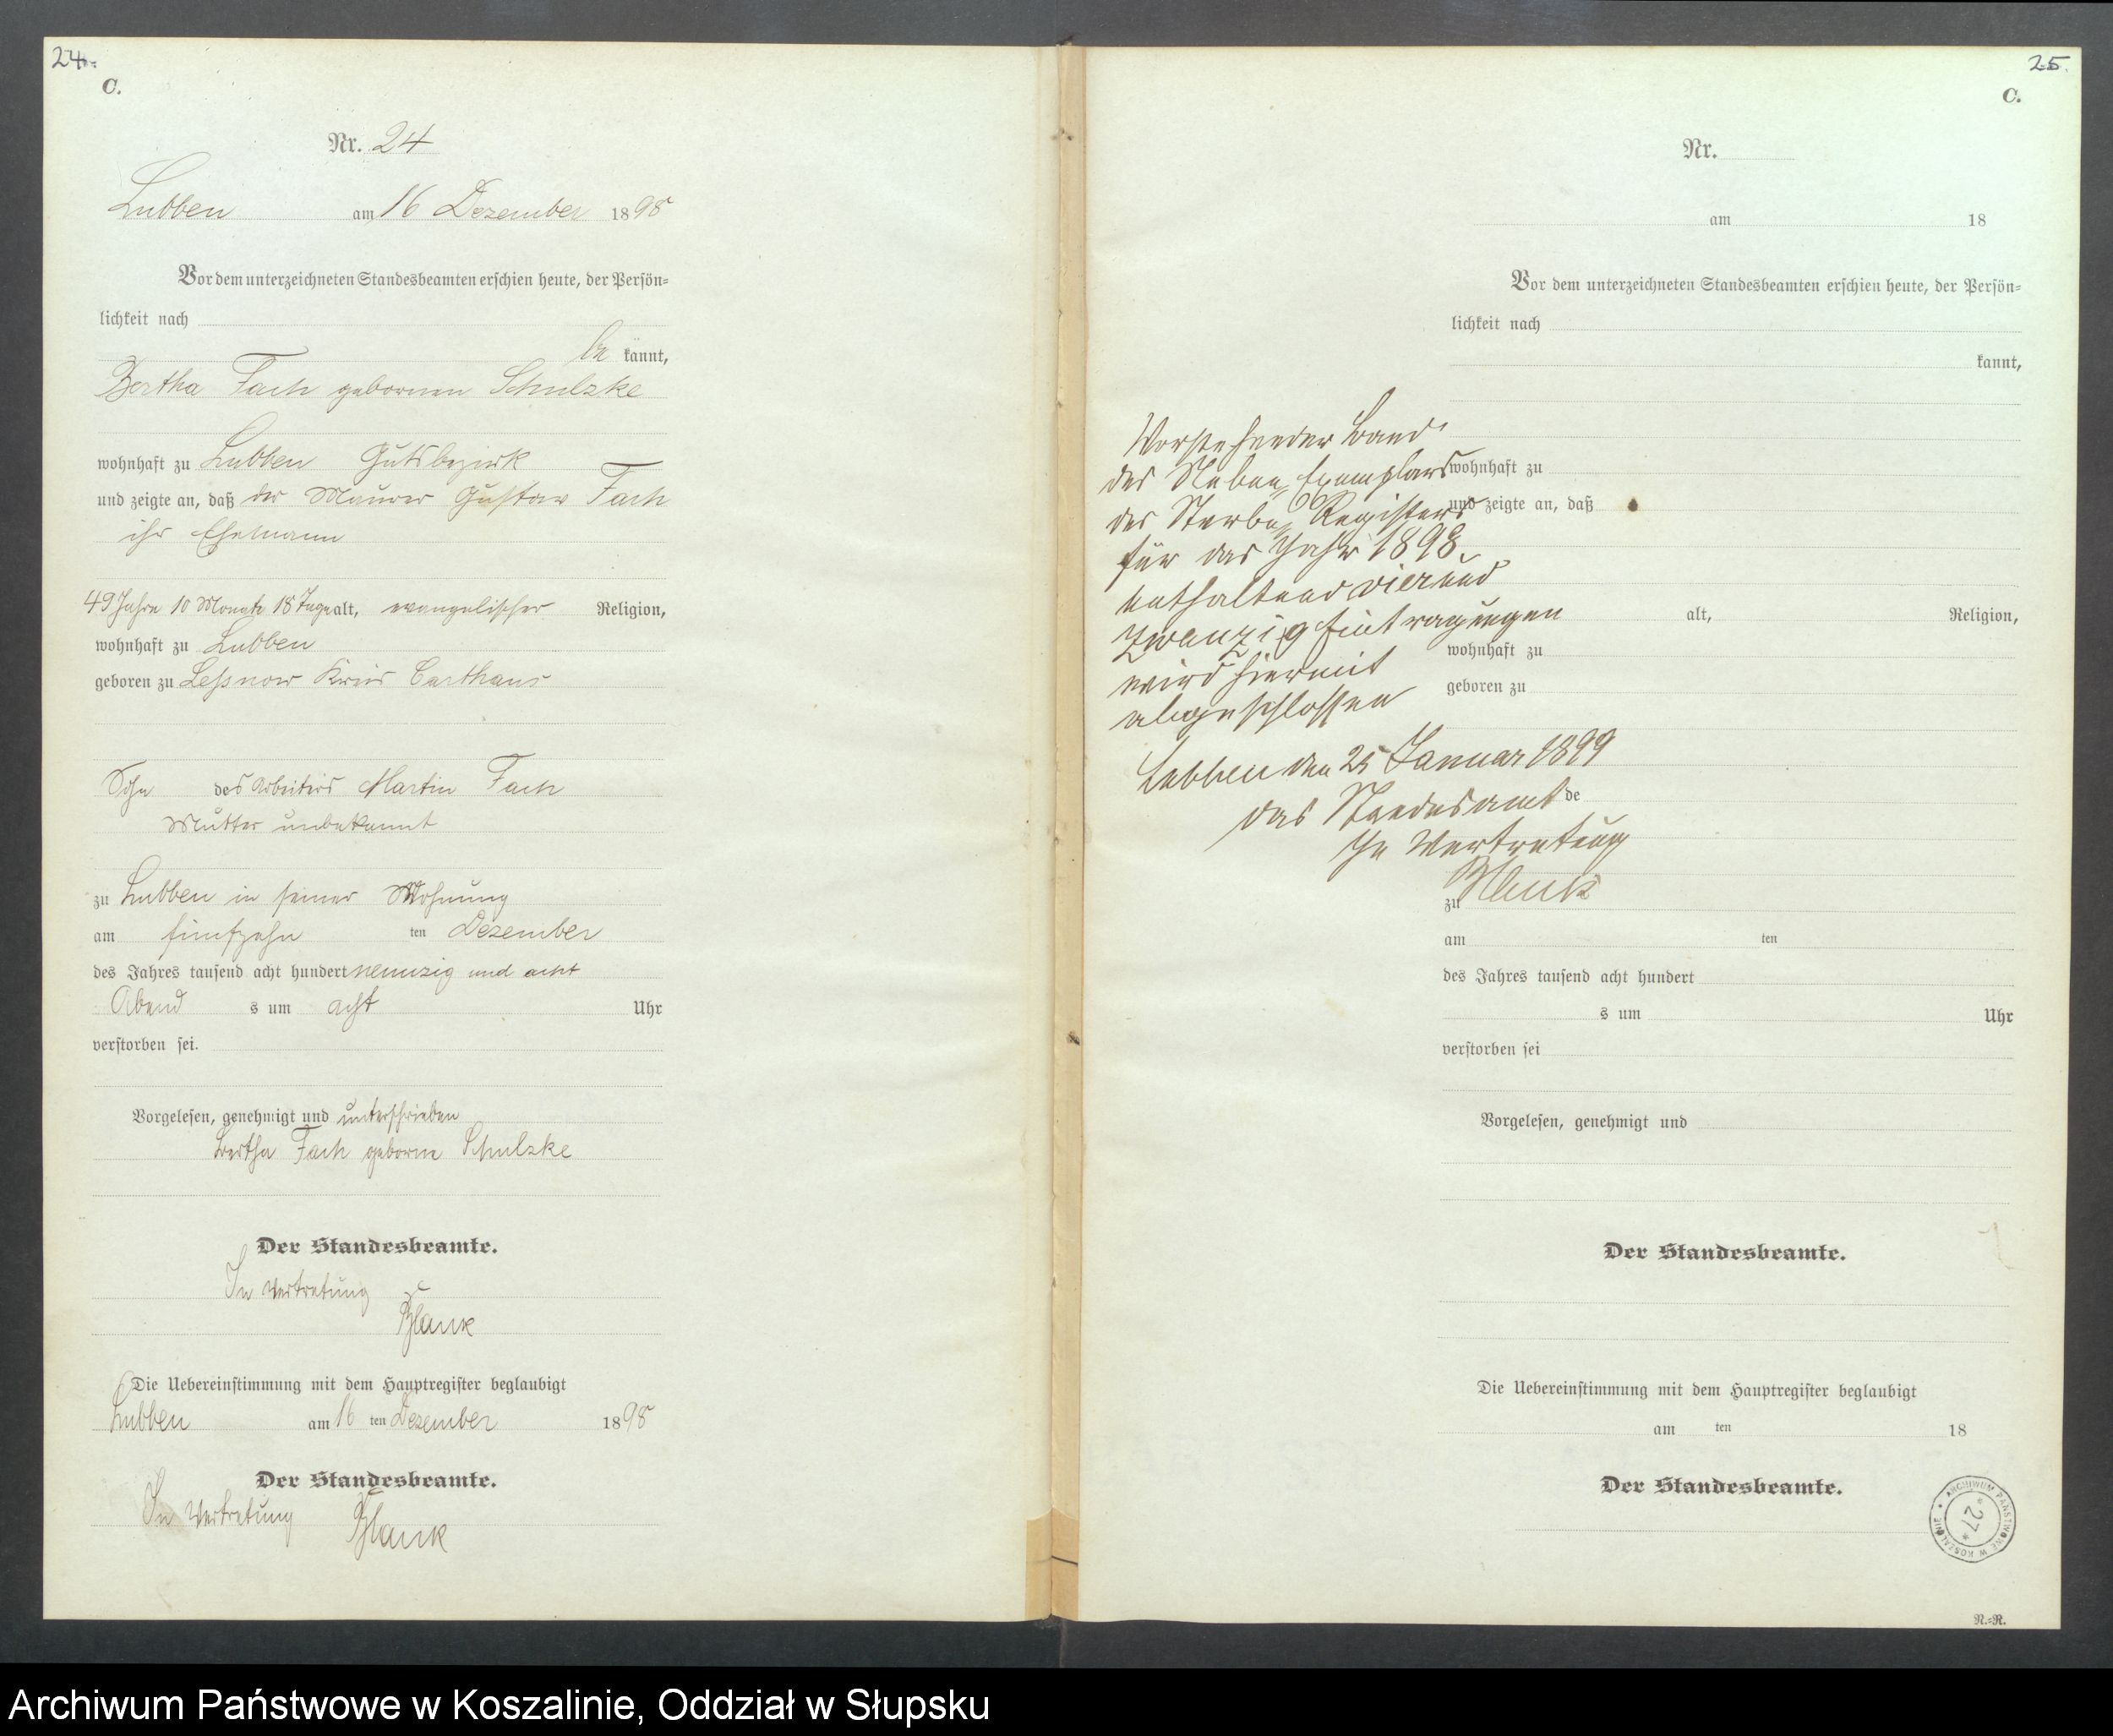 24.
C.
Nr. 24
Lubben am 16 Dezember 1898
Vor dem unterzeichneten Standesbeamten erschien heute, der Persön-
lichkeit nach
be kannt,
Bertha Fach gebornen Schulzke
wohnhaft zu Lubben Gutsbezirk
und zeigte an, daß der Maurer Gustav Fach
ihr Ehemann
49 Jahre 10 Monate 18 Tage alt, evangelischer Religion,
wohnhaft zu Lubben
geboren zu Leßnow Kreis Carthaus
Sohn des Arbeiters Martin Fach
Mutter unbekannt
zu Lubben in seiner Wohnung
am fünfzehn ten Dezember
des Jahres tausend acht hundert neunzig und acht
Abend s um acht Uhr
verstorben sei.
Vorgelesen, genehmigt und unterschrieben
Bertha Fach geborne Schulzke
Der Standesbeamte.
In Vertretung
Blank
Die Uebereinstimmung mit dem Hauptregister beglaubigt
Lubben am 16 ten Dezember 1898
Der Standesbeamte.
In Vertretung Blank
25.
C.
Nr.
am 18
Vor dem unterzeichneten Standesbeamten erschien heute, der Persön-
lichkeit nach
kannt,
Vorstehender Band
des Neben Exemplars
des Sterbe Registers
für das Jahr 1898
enthaltend vierund
zwanzig Eintragungen
wird hiermit
abgeschlossen
Lubben den 25 Januar 1899
das Standesamt
In Vertretung
Blank
wohnhaft zu
und zeigte an, daß
alt, Religion,
wohnhaft zu
geboren zu
de
zu
am ten
des Jahres tausend acht hundert
s um Uhr
verstorben sei
Vorgelesen, genehmigt und
Der Standesbeamte.
Die Uebereinstimmung mit dem Hauptregister beglaubigt
am ten 18
Der Standesbeamte.
ARCHIWUM PAŃSTWOWE W KOSZALINIE
* 27 *
N.=R.
Archiwum Państwowe w Koszalinie, Oddział w Słupsku